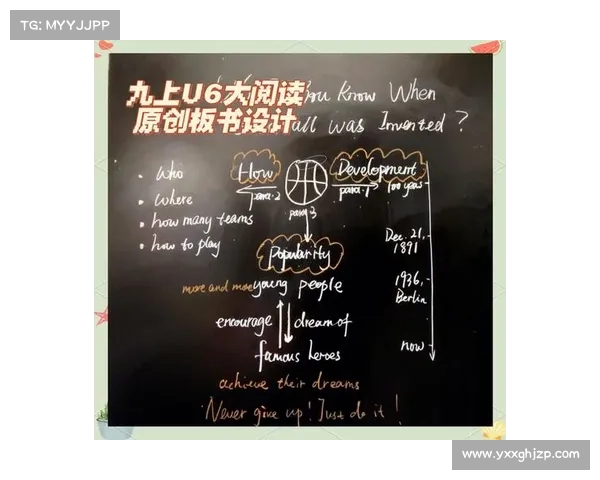 TG: MYYJJPP
九上U6大阅读
原创板书设计
You Know When
all was Invented?
• Who
• Where
• how many teams
• how to play
How
para.2
Development
para.1
100 years
para.3
Popularity
more and more young people
encourage
dream of
famous heroes
achieve their dreams
Never give up! Just do it!
Dec. 21, 1891
1936, Berlin
now
www.yxxghjzp.com